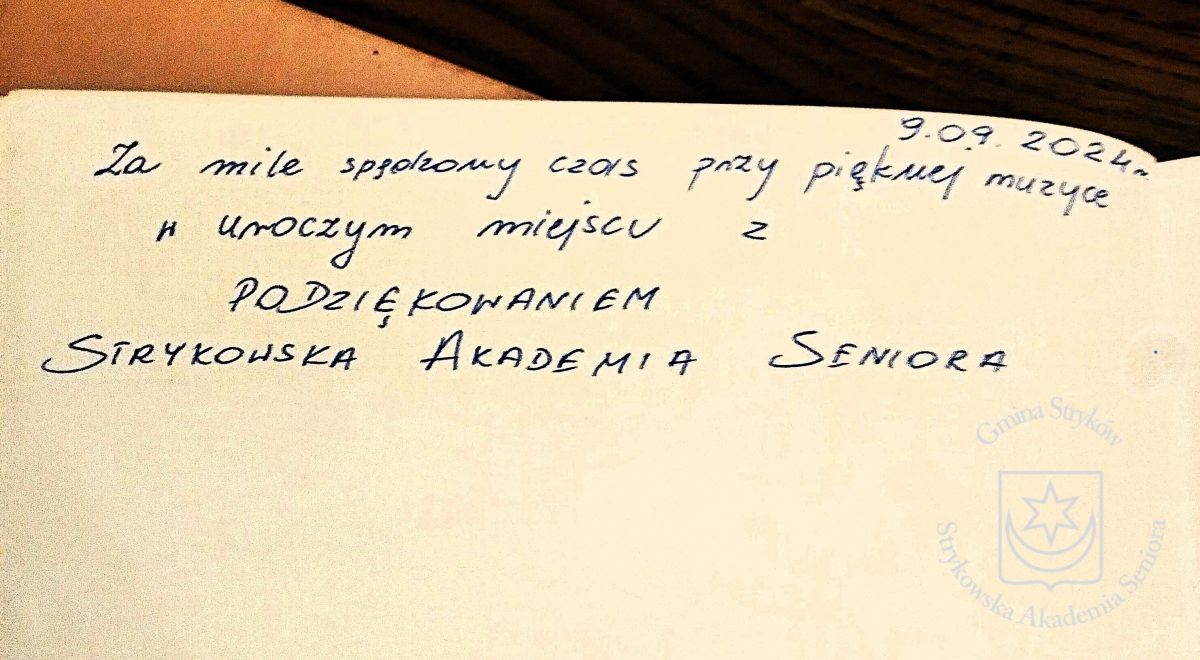 9.09.2024r
Za mile spędzony czas przy pięknej muzyce
w uroczym miejscu z
PODZIĘKOWANIEM
STRYKOWSKA AKADEMIA SENIORA
Gmina Stryków
Strykowska Akademia Seniora